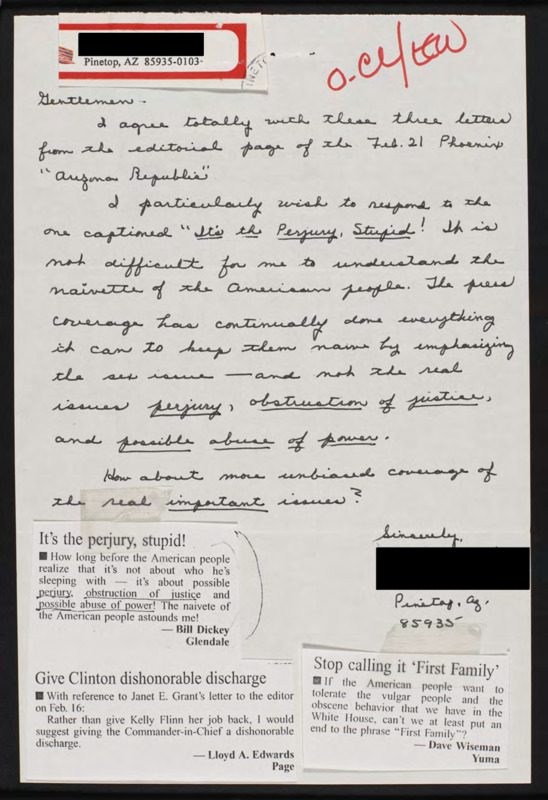 Pinetop, AZ 85935-0103
Gentlemen -
I agree totally with these three letters
from the editorial page of the Feb. 21 Phoenix
"Arizona Republic"
I particularly wish to respond to the
one captioned "It's the Perjury, Stupid! It is
not difficult for me to understand the
naivette of the American people. The press
coverage has continually done everything
it can to keep them naive by emphasizing
the sex issue — and not the real
issues perjury, obstruction of justice,
and possible abuse of power.
How about more unbiased coverage of
the real important issues?
Sincerely,
Pinetop, Az.
85935
It's the perjury, stupid!
■ How long before the American people
realize that it's not about who he's
sleeping with — it's about possible
perjury, obstruction of justice and
possible abuse of power! The naivete of
the American people astounds me!
— Bill Dickey
Glendale
Give Clinton dishonorable discharge
■ With reference to Janet E. Grant's letter to the editor
on Feb. 16:
Rather than give Kelly Flinn her job back, I would
suggest giving the Commander-in-Chief a dishonorable
discharge.
— Lloyd A. Edwards
Page
Stop calling it 'First Family'
■ If the American people want to
tolerate the vulgar people and the
obscene behavior that we have in the
White House, can't we at least put an
end to the phrase "First Family"?
— Dave Wiseman
Yuma